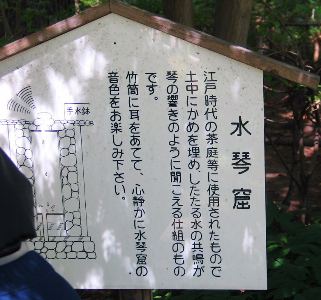 水琴窟
江戸時代の茶庭等に使用されたもので
土中にかめを埋め、したたる水の共鳴が
琴の響きのように聞こえる仕組のもの
です。
竹筒に耳をあてて、心静かに水琴窟の
音色をお楽しみ下さい。
手水鉢